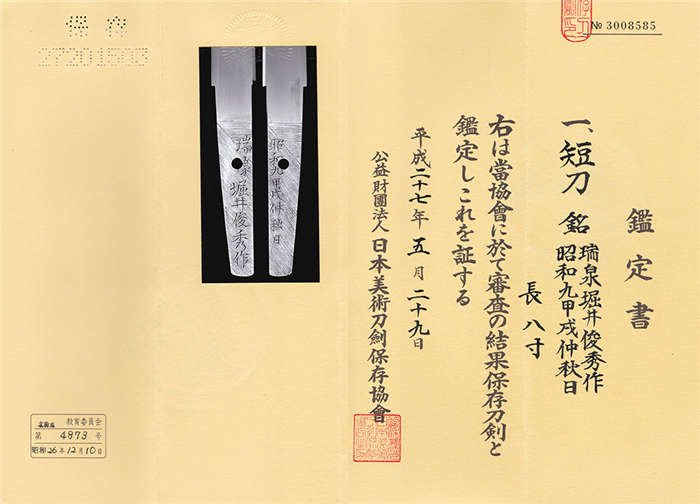 鑑定書
一、短刀 銘 瑞泉堀井俊秀作
昭和九甲戌仲秋日
長八寸
右は當協會に於て審査の結果保存刀剣と
鑑定しこれを証する
平成二十七年五月二十九日
公益財團法人 日本美術刀劍保存協會
№ 3008585
瑞泉堀井俊秀作
昭和九甲戌仲秋日
保存
教育委員会
第 4973 号
昭和26年12月10日